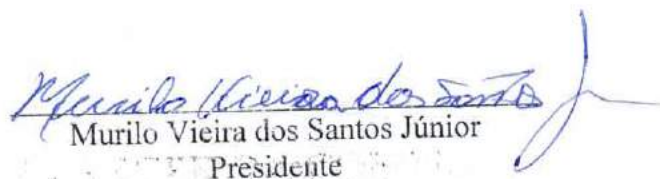 Murilo Vieira dos Santos Jr
Murilo Vieira dos Santos Júnior
Presidente